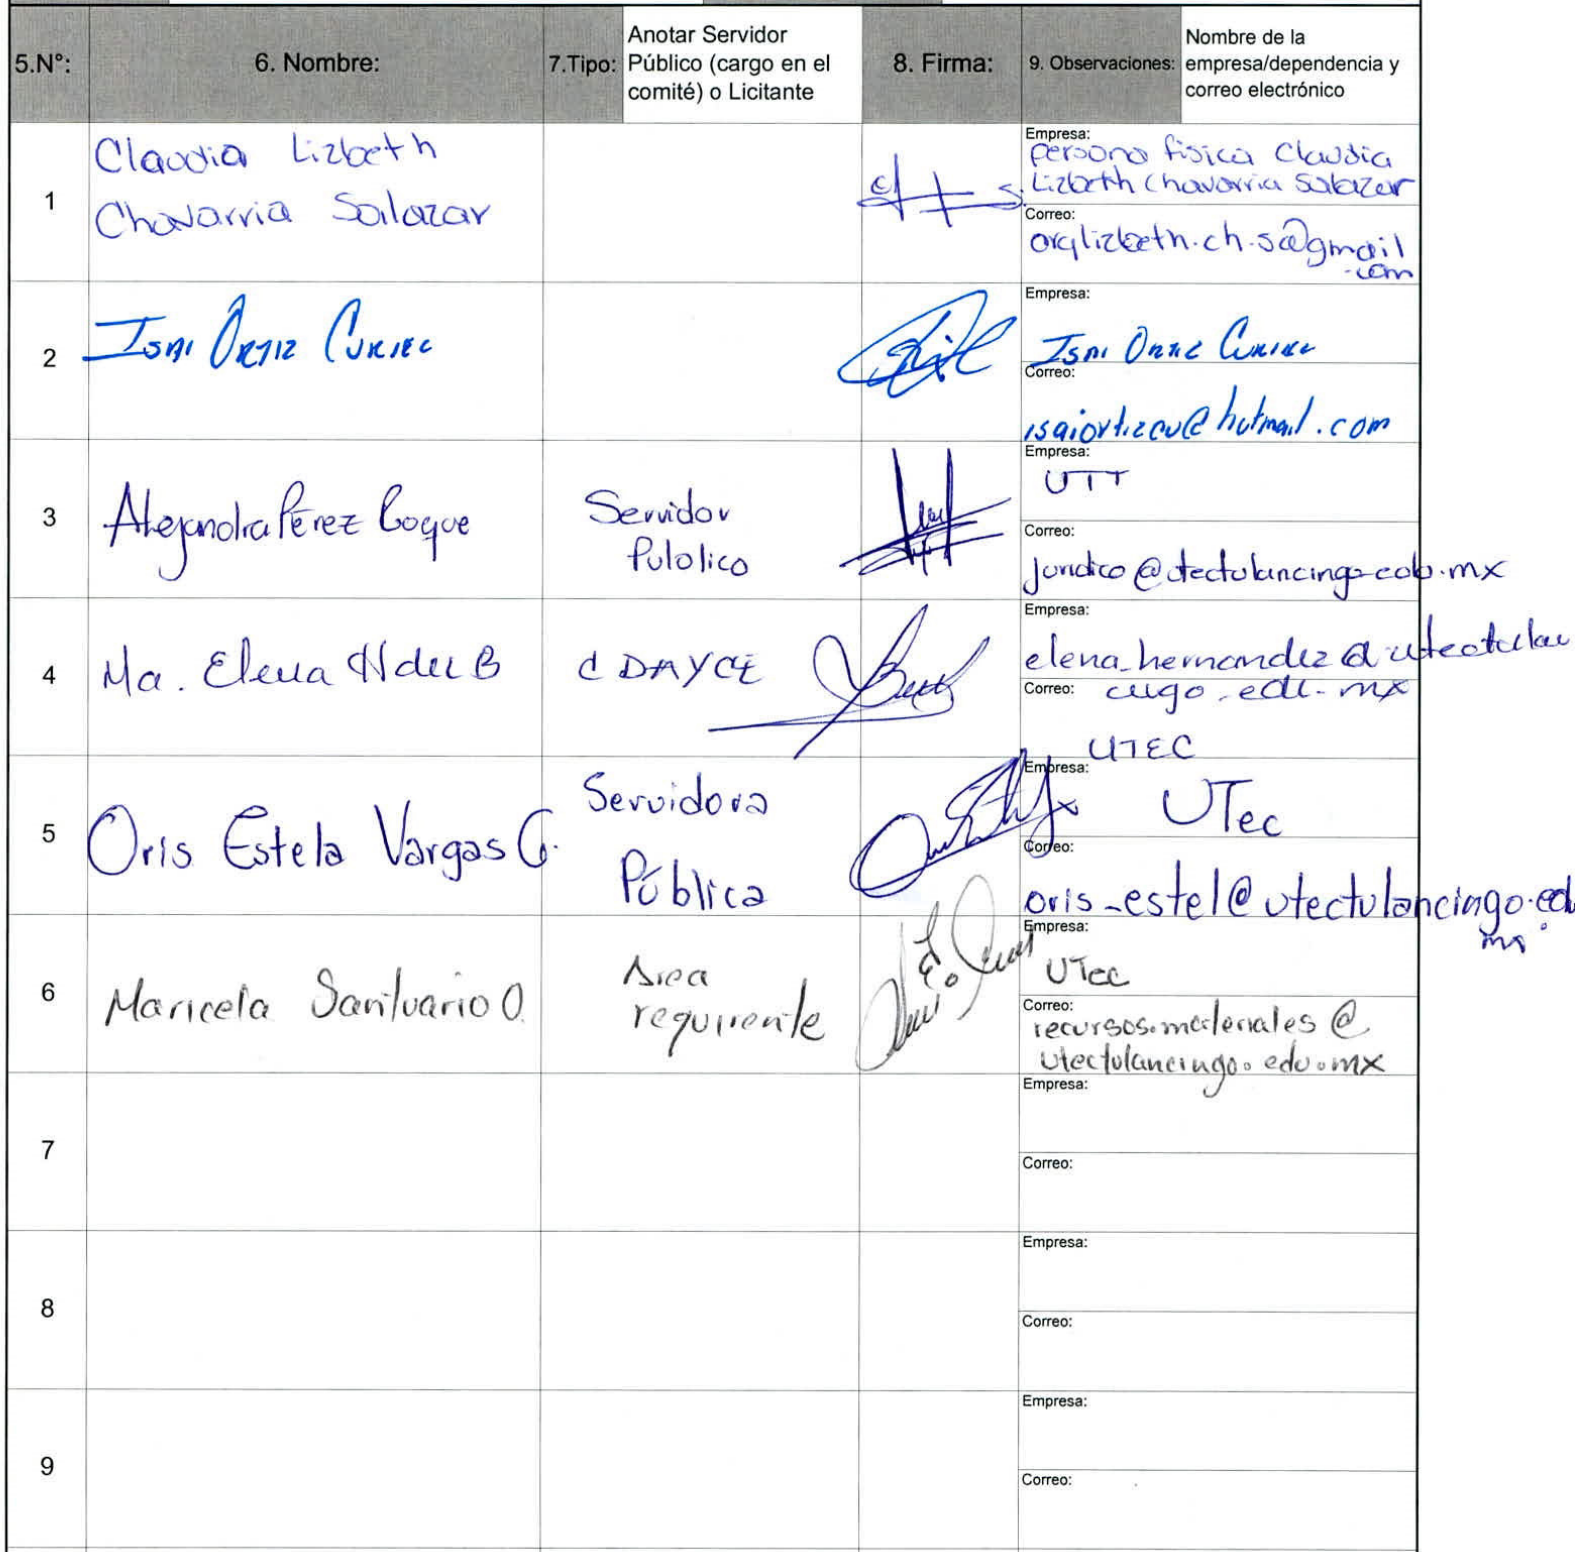 5.N°:
6. Nombre:
7.Tipo:
Anotar Servidor
Público (cargo en el
comité) o Licitante
8. Firma:
9. Observaciones:
Nombre de la
empresa/dependencia y
correo electrónico
1
Claudia Lizbeth
Chavarria Salazar
Empresa:
persona fisica Claudia
Lizbeth Chavarria Salazar
Correo:
arqlizbeth.ch.s@gmail
.com
2
Isai Ortiz Curiel
Empresa:
Isai Ortiz Curiel
Correo:
isaiortizcu@hotmail.com
3
Alejandra Pérez Roque
Servidor
Publico
Empresa:
UTT
Correo:
juridico@utectulancingo.edu.mx
4
Ma. Elena Hdez B
C DAYCE
Empresa:
elena_hernandez@utectulan
cingo.edu.mx
Correo:
UTEC
5
Oris Estela Vargas G.
Servidora
Pública
Empresa:
UTec
Correo:
oris_estel@utectulancingo.edu.
mx
6
Maricela Santuario O.
Area
requirente
Empresa:
UTec
Correo:
recursos.materiales@
utectulancingo.edu.mx
7
Empresa:
Correo:
8
Empresa:
Correo:
9
Empresa:
Correo: